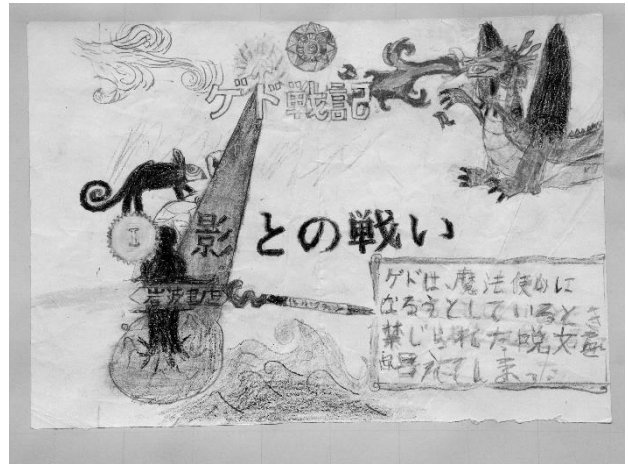 ゲド戦記
I 影との戦い
岩波書店
ゲドは、魔法使いに
なろうとしているとき
禁じられた呪文を
しまった